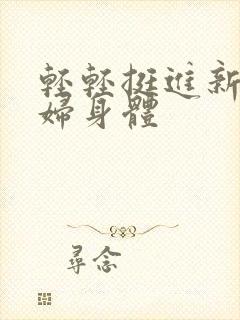 輕輕挺進新
婦身體
尋念